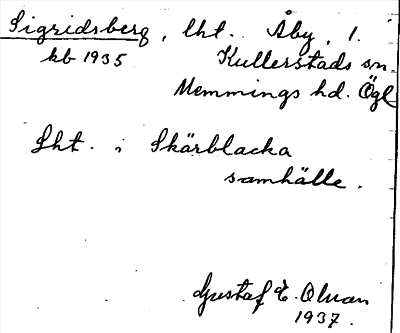 Sigridsberg, lht. Åby, 1.
kb 1935 Kullerstads sn.
Memmings hd. Ögl
Lht. i Skärblacka
samhälle.
Gustaf E. Olman
1937.